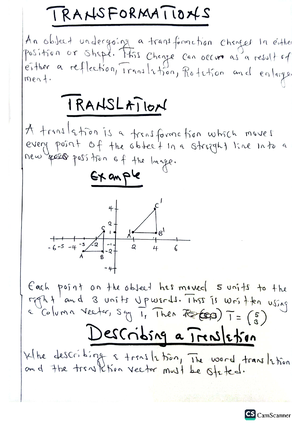 TRANSFORMATIONS
An object undergoing a transformation changes in either
position or shape. This change can occur as a result of
either a reflection, Translation, Rotation and enlarge-
ment.
TRANSLATION
A translation is a transformation which moves
every point of the object in a straight line into a
new position of the Image.
Example
4
2
1
-6 -5 -4 -3 -2
2 4 6
-2
-4
A B C
A' B' C'
Each point on the object has moved 5 units to the
right and 3 units upwards. This is written using
a column vector, say T, Then T = (5 3)
Describing a Translation
When describing a translation, The word translation
and the translation vector must be stated.
CS CamScanner